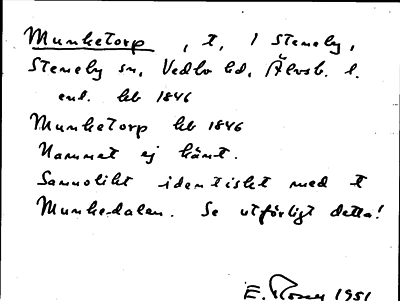 Munketorp , t, 1 Steneby,
Steneby sn, Vedbo hd, Älvsb. l.
enl. hb 1846
Munketorp hb 1846
Namnet ej känt.
Sannolikt identiskt med t
Munkedalen. Se utförligt detta!
E. Rosen 1951